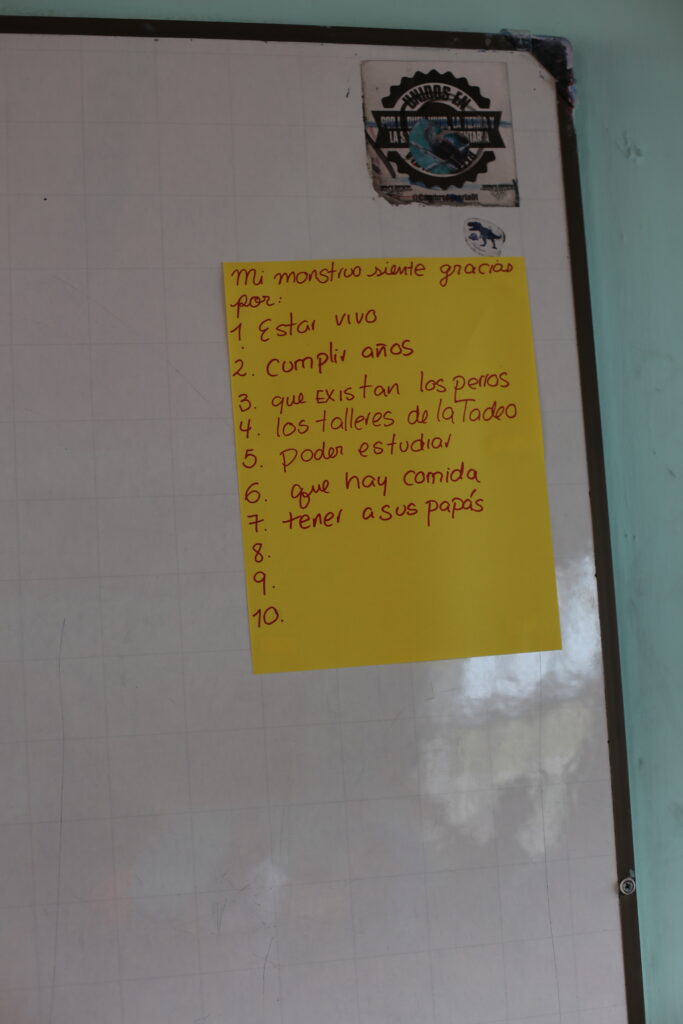 UNIDOS EN
POR BUEN VIVIR, LA TIERRA Y
LA
Mi monstruo siente gracias
por:
1 Estar vivo
2. cumplir años
3. que EXISTAN los perros
4. los talleres de la Tadeo
5. poder estudiar
6. que hay comida
7. tener a sus papás
8.
9.
10.